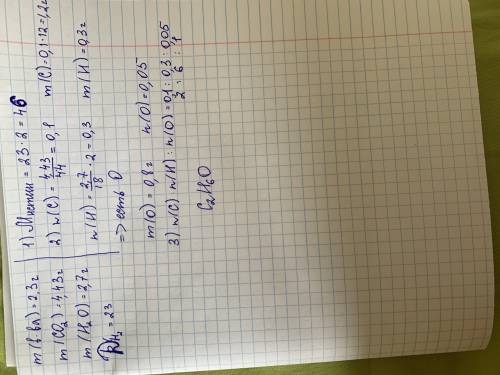 m(в-ва)=2,3г
m(CO₂)=4,43г
m(H₂O)=2,7г
D H₂ = 23
1) Mистин = 23·2=46
2) n(C) = 4,43/44 = 0,1 m(C)=0,1·12=1,2г
n(H) = 2,7/18 · 2=0,3 m(H)=0,3г
=> есть O
m(O)=0,8г n(O)=0,05
3) n(C):n(H):n(O)=0,1:0,3:0,05
2 : 6 : 1
C₂H₆O